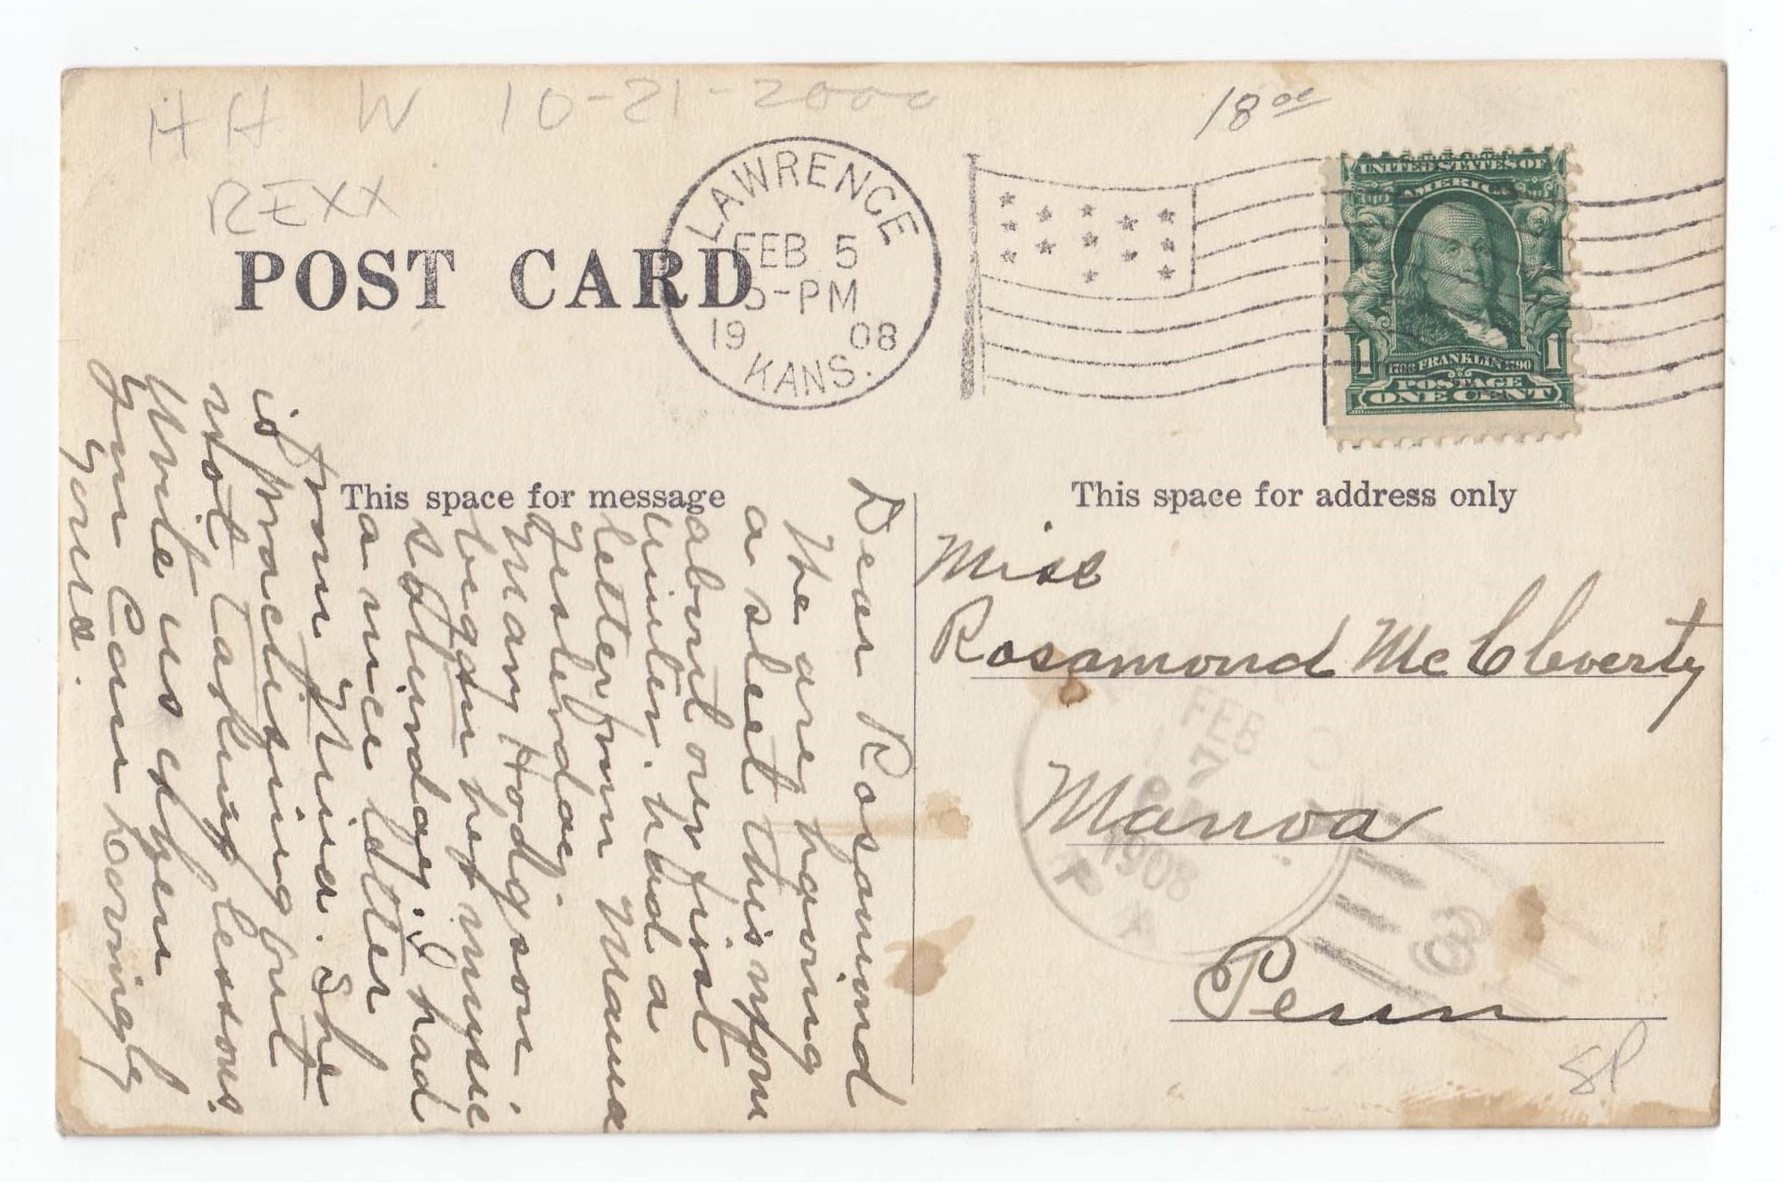 H H W 10-21-2000
18 00
REXX
POST CARD
LAWRENCE
FEB 5
-PM
19 08
KANS.
UNITED STATES OF
AMERICA
1 FRANKLIN 1
POSTAGE
ONE CENT
This space for message
This space for address only
Dear Rosamond
We are having
a sleet this morn
about our first
winter. had a
letter from Mama
yesterday.
Mary Hodgson
began her music
Stunday. I had
a nice letter
from Nina. She
is practising but
not taking lessons.
Write us when
you can Lovingly
yours.
Miss
Rosamond McCleverty
Manoa
Penn
FEB
7
1908
PA
3